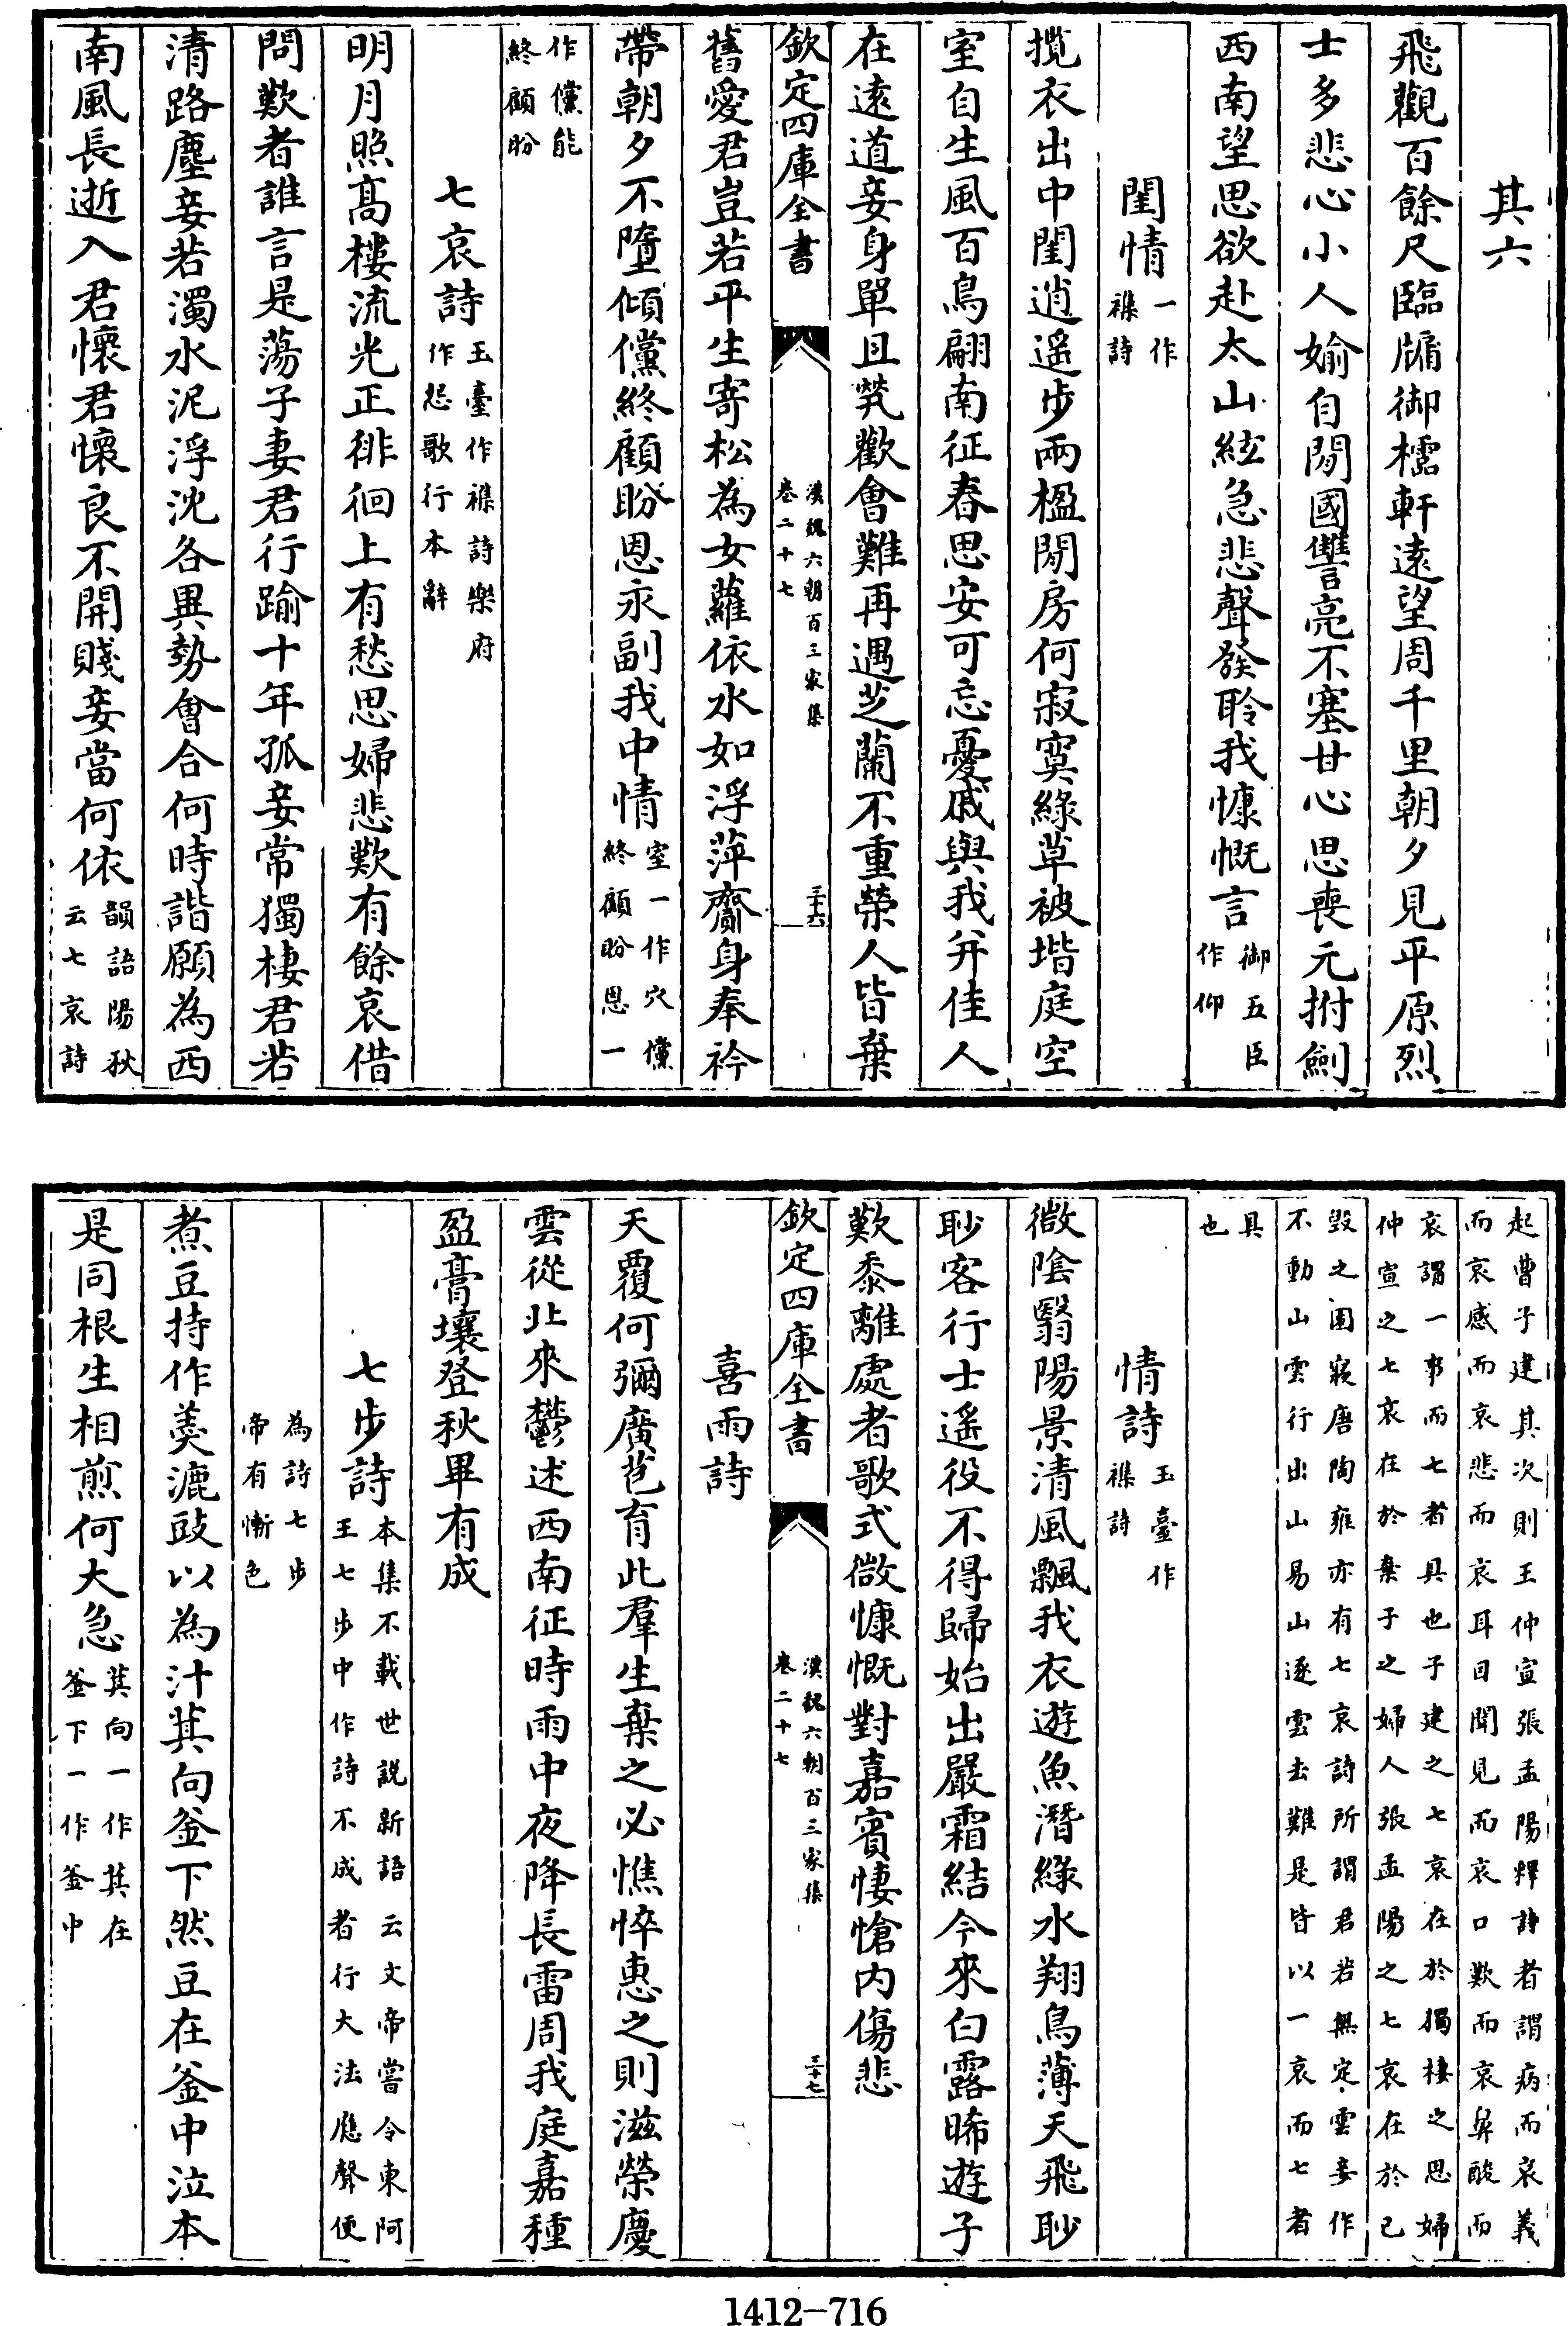 其六
飛觀百餘尺臨牖御櫺軒遠望周千里朝夕見平原烈
士多悲心小人媮自閒國讐亮不塞甘心思喪元拊劒
西南望思欲赴太山絃急悲聲發聆我慷慨言御五臣
作仰
閨情一作
襍詩
攬衣出中閨逍遥步兩楹閒房何寂寞綠草被堦庭空
室自生風百鳥翩南征春思安可忘憂戚與我并佳人
在遠道妾身單且煢歡會難再遇芝蘭不重榮人皆棄
欽定四庫全書
漢魏六朝百三家集
卷二十七
三十六
舊愛君豈若平生寄松為女蘿依水如浮萍齎身奉衿
帶朝夕不墮傾儻終顧盼恩永副我中情室一作穴儻
終顧盼恩一
作儻能
終顧盼
七哀詩玉臺作襍詩樂府
作怨歌行本辭
明月照髙樓流光正徘徊上有愁思婦悲歎有餘哀借
問歎者誰言是蕩子妻君行踰十年孤妾常獨棲君若
清路塵妾若濁水泥浮沈各異勢會合何時諧願為西
南風長逝入君懷君懷良不開賤妾當何依韻語陽秋
云七哀詩
起曹子建其次則王仲宣張孟陽釋詩者謂病而哀義
而哀感而哀悲而哀耳目聞見而哀口歎而哀鼻酸而
哀謂一事而七者具也子建之七哀在於獨棲之思婦
仲宣之七哀在於棄子之婦人張孟陽之七哀在於已
毁之園寢唐陶雍亦有七哀詩所謂君若無定雲妾作
不動山雲行出山易山逐雲去難是皆以一哀而七者
具
也
情詩玉臺作
襍詩
微陰翳陽景清風飄我衣遊魚潛綠水翔鳥薄天飛眇
眇客行士遥役不得歸始出嚴霜結今來白露晞遊子
歎黍離處者歌式微慷慨對嘉賓悽愴内傷悲
欽定四庫全書
漢魏六朝百三家集
卷二十七
三十七
喜雨詩
天覆何彌廣苞育此羣生棄之必憔悴惠之則滋榮慶
雲從北來鬱述西南征時雨中夜降長雷周我庭嘉種
盈膏壤登秋畢有成
七步詩本集不載世說新語云文帝嘗令東阿
王七步中作詩不成者行大法應聲便
為詩七步
帝有慚色
煮豆持作羮漉豉以為汁萁向釜下然豆在釜中泣本
是同根生相煎何大急萁向一作萁在
釜下一作釜中
1412-716